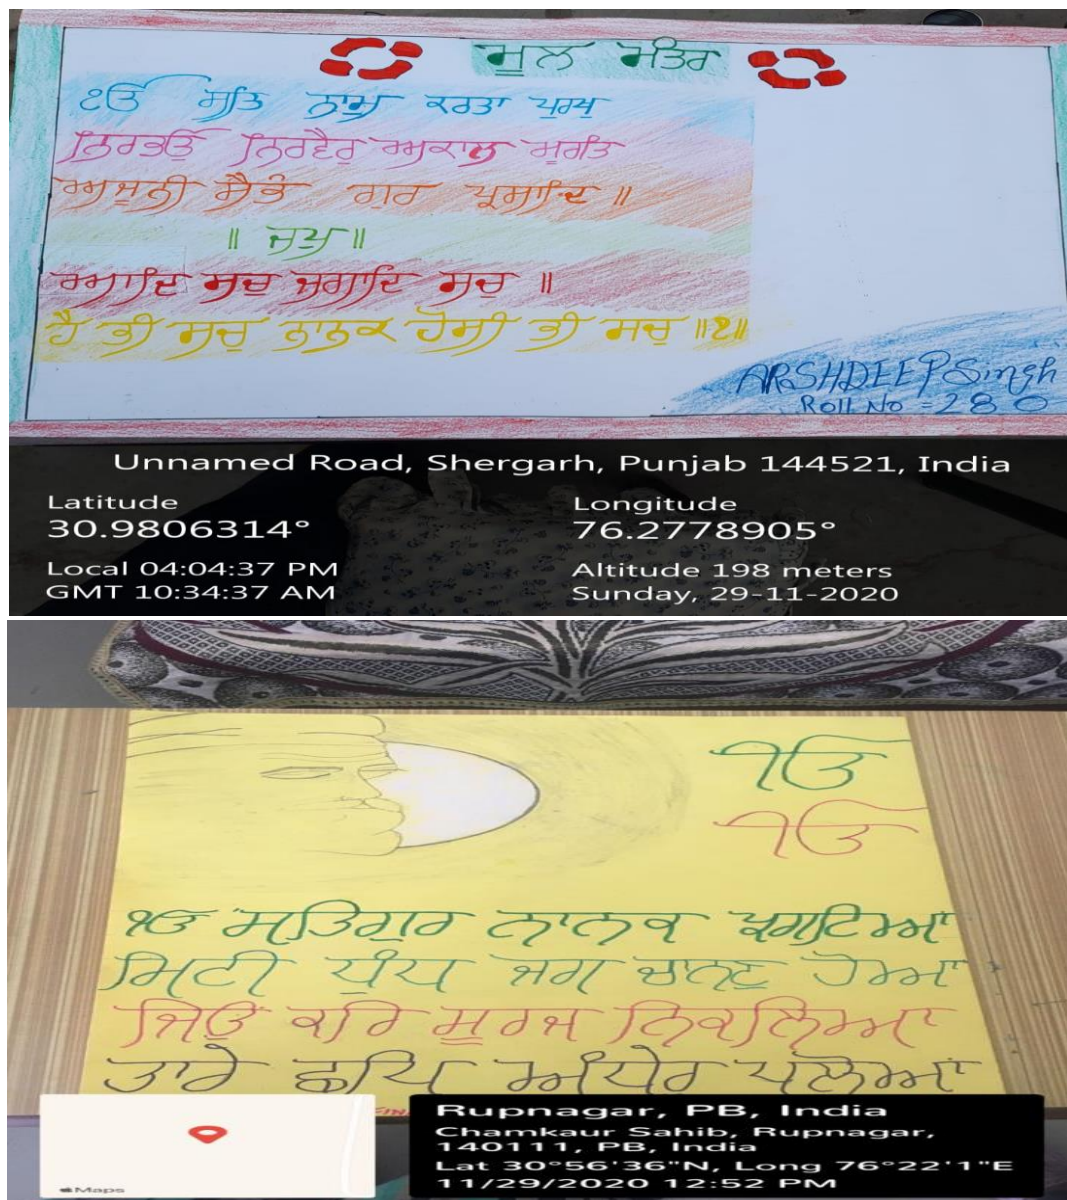 ਮੂਲ ਮੰਤਰ
ੴ ਸਤਿ ਨਾਮੁ ਕਰਤਾ ਪੁਰਖੁ
ਨਿਰਭਉ ਨਿਰਵੈਰੁ ਅਕਾਲ ਮੂਰਤਿ
ਅਜੂਨੀ ਸੈਭੰ ਗੁਰ ਪ੍ਰਸਾਦਿ ॥
॥ ਜਪੁ ॥
ਆਦਿ ਸਚੁ ਜੁਗਾਦਿ ਸਚੁ ॥
ਹੈ ਭੀ ਸਚੁ ਨਾਨਕ ਹੋਸੀ ਭੀ ਸਚੁ ॥੧॥
ARSHDEEP Singh
Roll No = 280
Unnamed Road, Shergarh, Punjab 144521, India
Latitude
30.9806314°
Longitude
76.2778905°
Local 04:04:37 PM
GMT 10:34:37 AM
Altitude 198 meters
Sunday, 29-11-2020
ੴ
ੴ
ੴ ਸਤਿਗੁਰ ਨਾਨਕ ਪ੍ਰਗਟਿਆ
ਮਿਟੀ ਧੁੰਧ ਜਗ ਚਾਨਣੁ ਹੋਆ
ਜਿਉਂ ਕਰਿ ਸੂਰਜ ਨਿਕਲਿਆ
ਤਾਰੇ ਛਪਿ ਅੰਧੇਰ ਪਲੋਆ
Rupnagar, PB, India
Chamkaur Sahib, Rupnagar,
140111, PB, India
Lat 30°56'36"N, Long 76°22'1"E
11/29/2020 12:52 PM
Maps